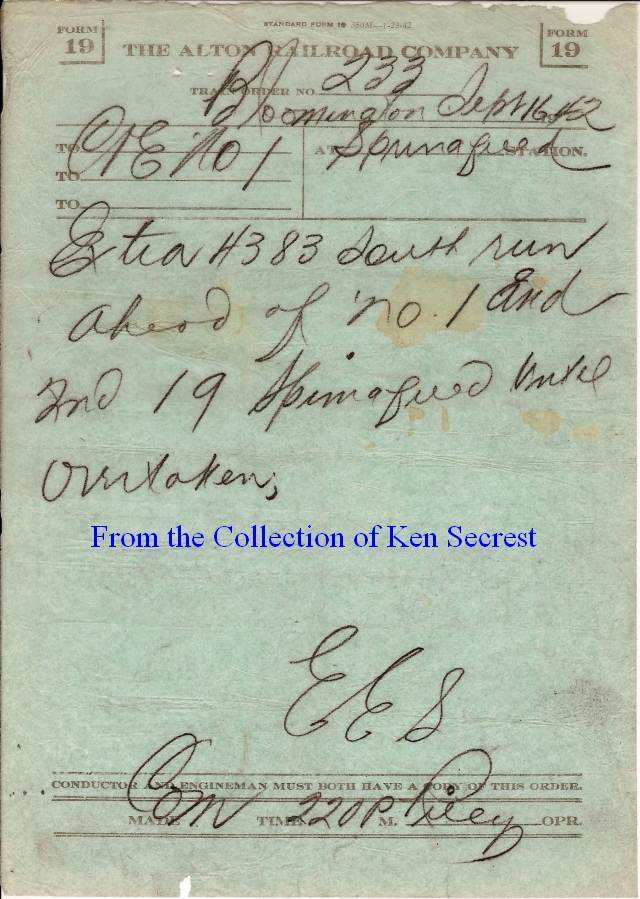 STANDARD FORM 19 350M—1-23-42
FORM 19
THE ALTON RAILROAD COMPANY
FORM 19
TRAIN ORDER NO. 233
Bloomington Sept 16 42
TO C&E No 1
AT Springfield STATION.
TO
TO
Extra 4383 South run
ahead of No. 1 and
2nd 19 Springfield until
Overtaken;
From the Collection of Ken Secrest
EES
CONDUCTOR AND ENGINEMAN MUST BOTH HAVE A COPY OF THIS ORDER.
MADE Com TIME 220P M. Riley OPR.